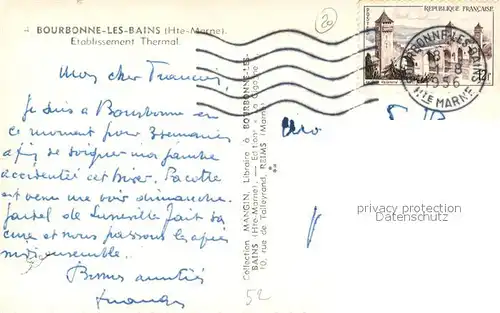 BOURBONNE-LES-BAINS (Hte-Marne).
Etablissement Thermal.
Mon cher Francis,
Je suis à Bourbonne en
ce moment pour 3 semaines
afin de soigner ma jambe
accidentée cet hiver.
est venu me voir dimanche.
de Luneville fait sa
cure et nous passons les après
midi ensemble.
Bonnes amitiés
Collection MANGIN, Libraire à BOURBONNE-LES-
BAINS (Hte-Marne). — Edition "La Cigogne"
10, rue de Talleyrand, REIMS (Marne)
20
52
REPUBLIQUE FRANÇAISE
BOURBONNE-LES-BAINS
1956
HTE MARNE
privacy protection
Datenschutz